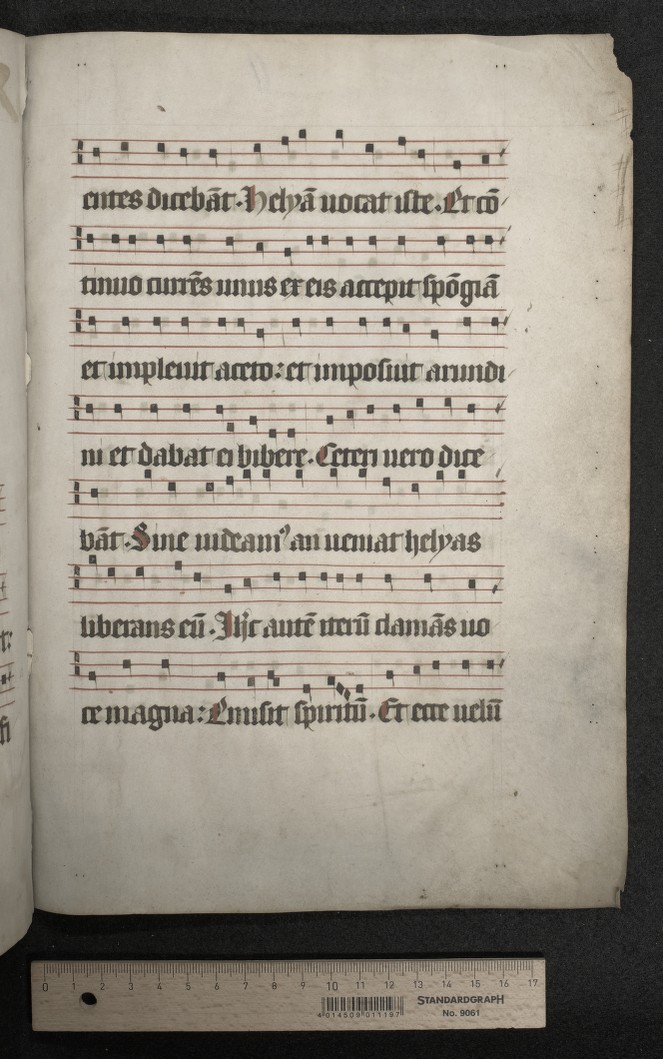 entes dicebāt. Helyā uocat iste. Et cō
tinuo currēs unus ex eis accepit spōgiā
et impleuit aceto: et imposuit arundi
ni et dabat ei bibere. Ceteri uero dice
bāt. Sine uideamꝰ an ueniat helyas
liberans eū. Ihc autē iterū clamās uo
ce magna: Emisit spiritū. Et ecce uelū
0 1 2 3 4 5 6 7 8 9 10 11 12 13 14 15 16 17
4 014509 011197
STANDARDGRAPH
No. 9061